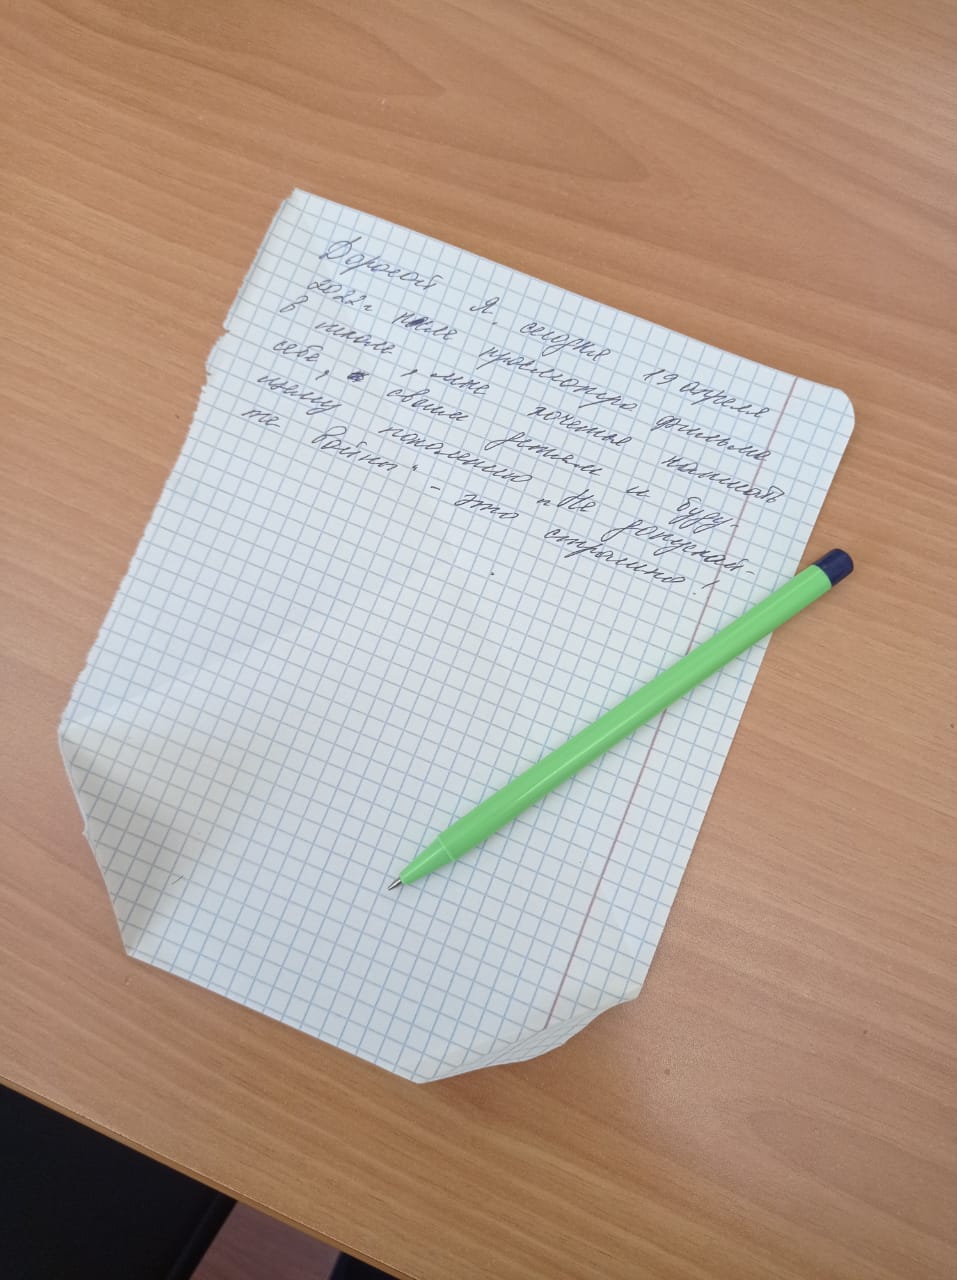 Дорогой Я. сегодня 19 апреля
2022г после просмотра фильма
в школе, мне хочется написать
себе, своим детям и буду-
щему поколению „Не допускай-
те войны" - это страшно!